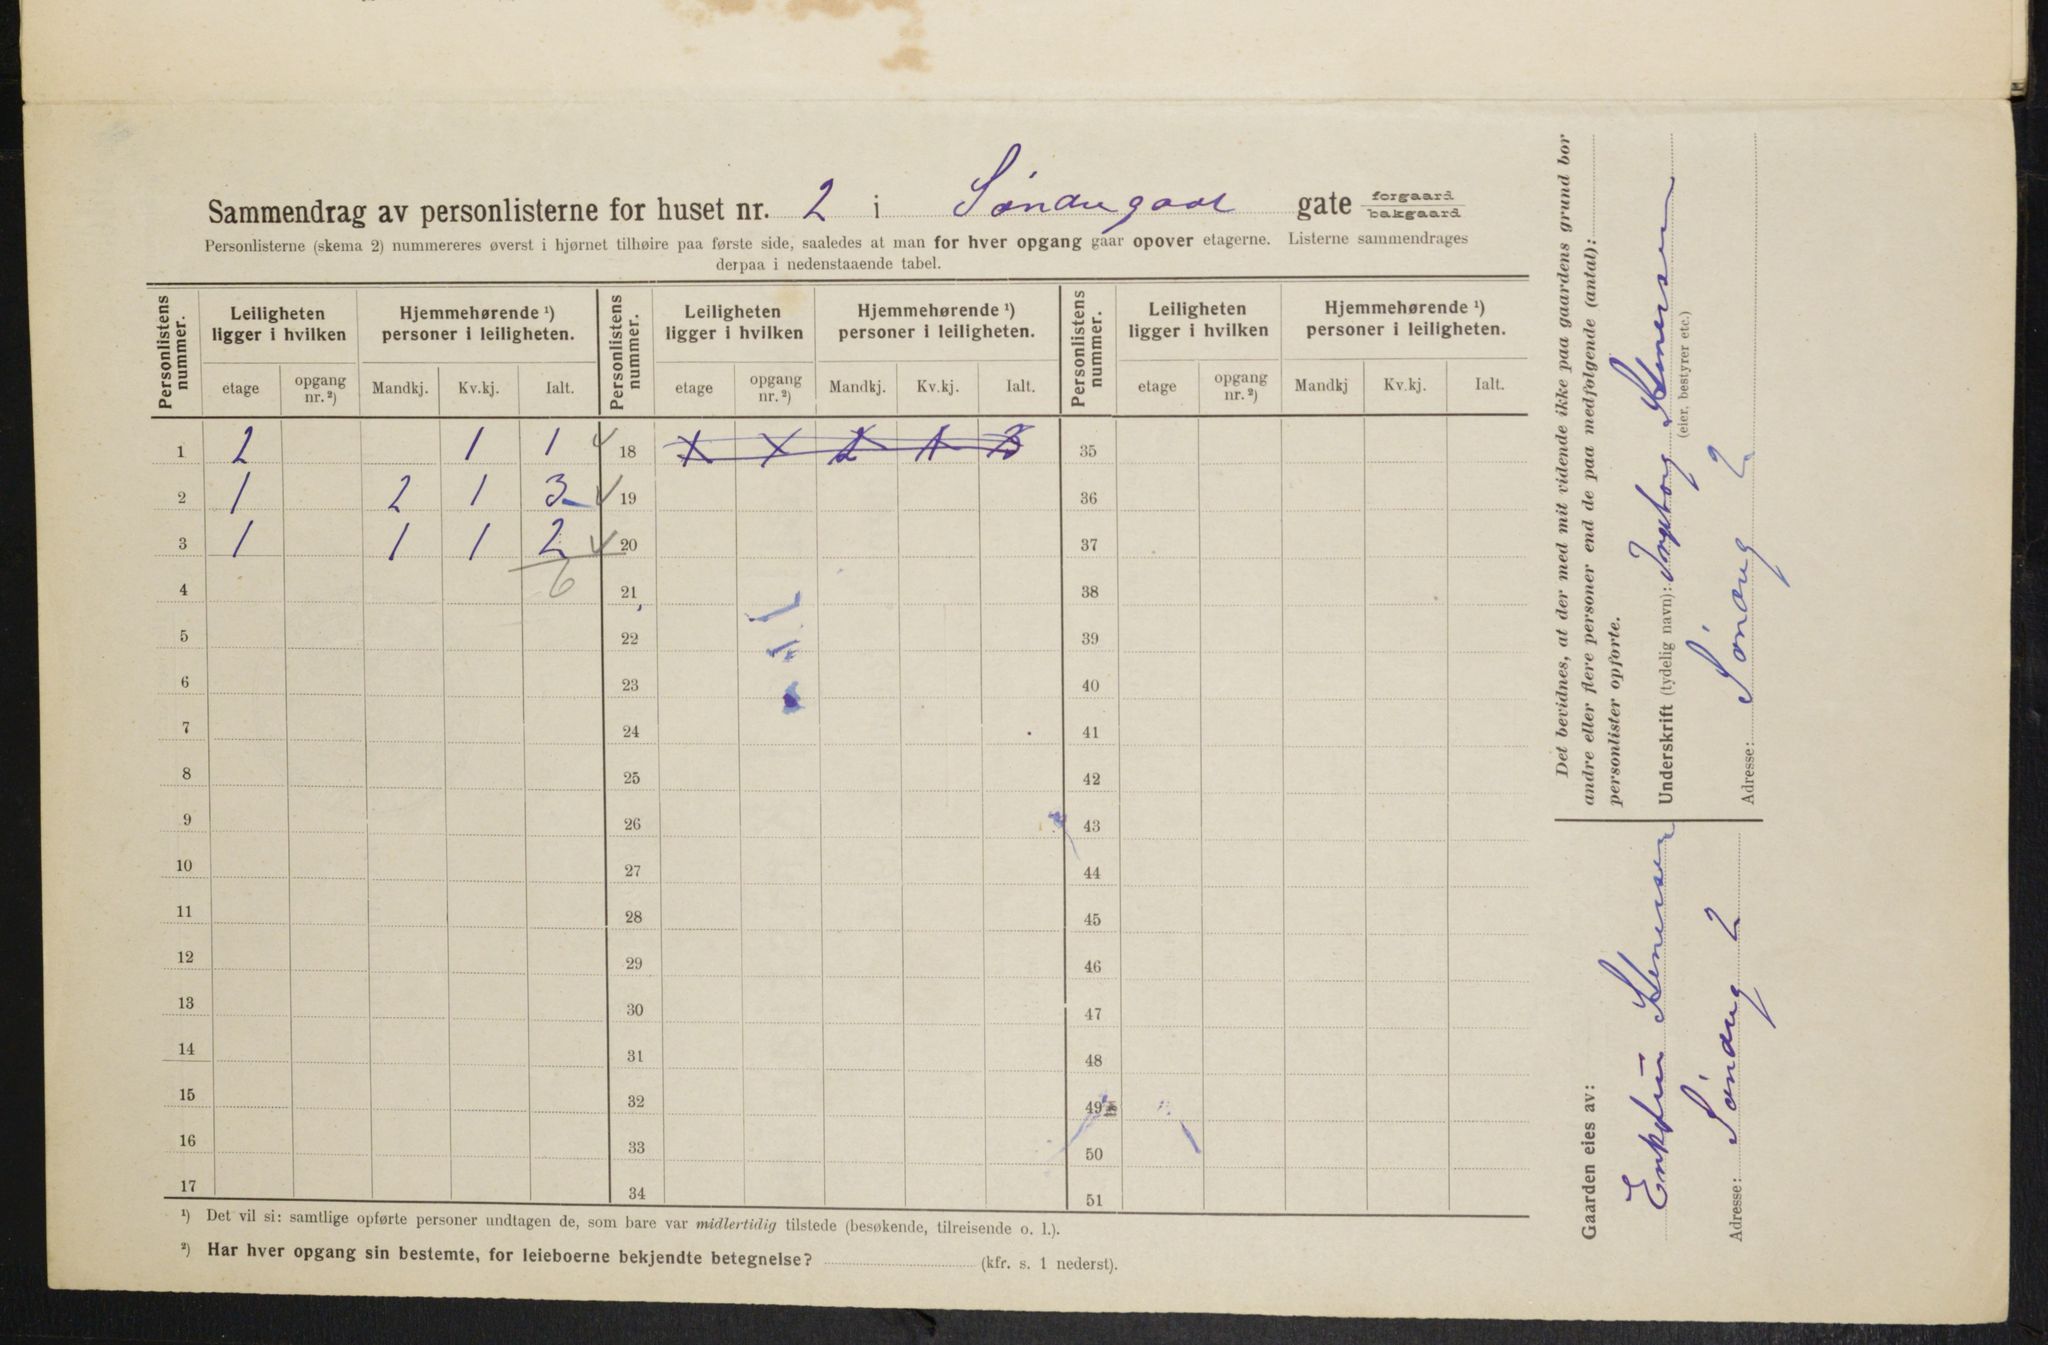 Sammendrag av personlisterne for huset nr. 2 i Søndregade gate forgaard bakgaard
Personlisterne (skema 2) nummereres øverst i hjørnet tilhøire paa første side, saaledes at man for hver opgang gaar opover etagerne. Listerne sammendrages
derpaa i nedenstaaende tabel.
Personlistens nummer. Leiligheten ligger i hvilken Hjemmehørende ¹) personer i leiligheten. Personlistens nummer. Leiligheten ligger i hvilken Hjemmehørende ¹) personer i leiligheten. Personlistens nummer. Leiligheten ligger i hvilken Hjemmehørende ¹) personer i leiligheten.
etage opgang nr. ²) Mandkj. Kv.kj. Ialt. etage opgang nr. ²) Mandkj. Kv.kj. Ialt. etage opgang nr. ²) Mandkj Kv.kj. Ialt.
1 2 1 1 18 35
2 1 2 1 3 19 36
3 1 1 1 2 20 37
4 6 21 38
5 22 39
6 23 40
7 24 41
8 25 42
9 26 43
10 27 44
11 28 45
12 29 46
13 30 47
14 31 48
15 32 49
16 33 50
17 34 51
¹) Det vil si: samtlige opførte personer undtagen de, som bare var midlertidig tilstede (besøkende, tilreisende o. l.).
²) Har hver opgang sin bestemte, for leieboerne bekjendte betegnelse? (kfr. s. 1 nederst).
Det bevidnes, at der med mit vidende ikke paa gaardens grund bor
andre eller flere personer end de paa medfølgende (antal):
personlister opførte.
Underskrift (tydelig navn): Ingeborg Stenersen
(eier, bestyrer etc.)
Adresse: Søndreg 2
Gaarden eies av:
Enkefru Stenersen
Adresse: Søndreg 2